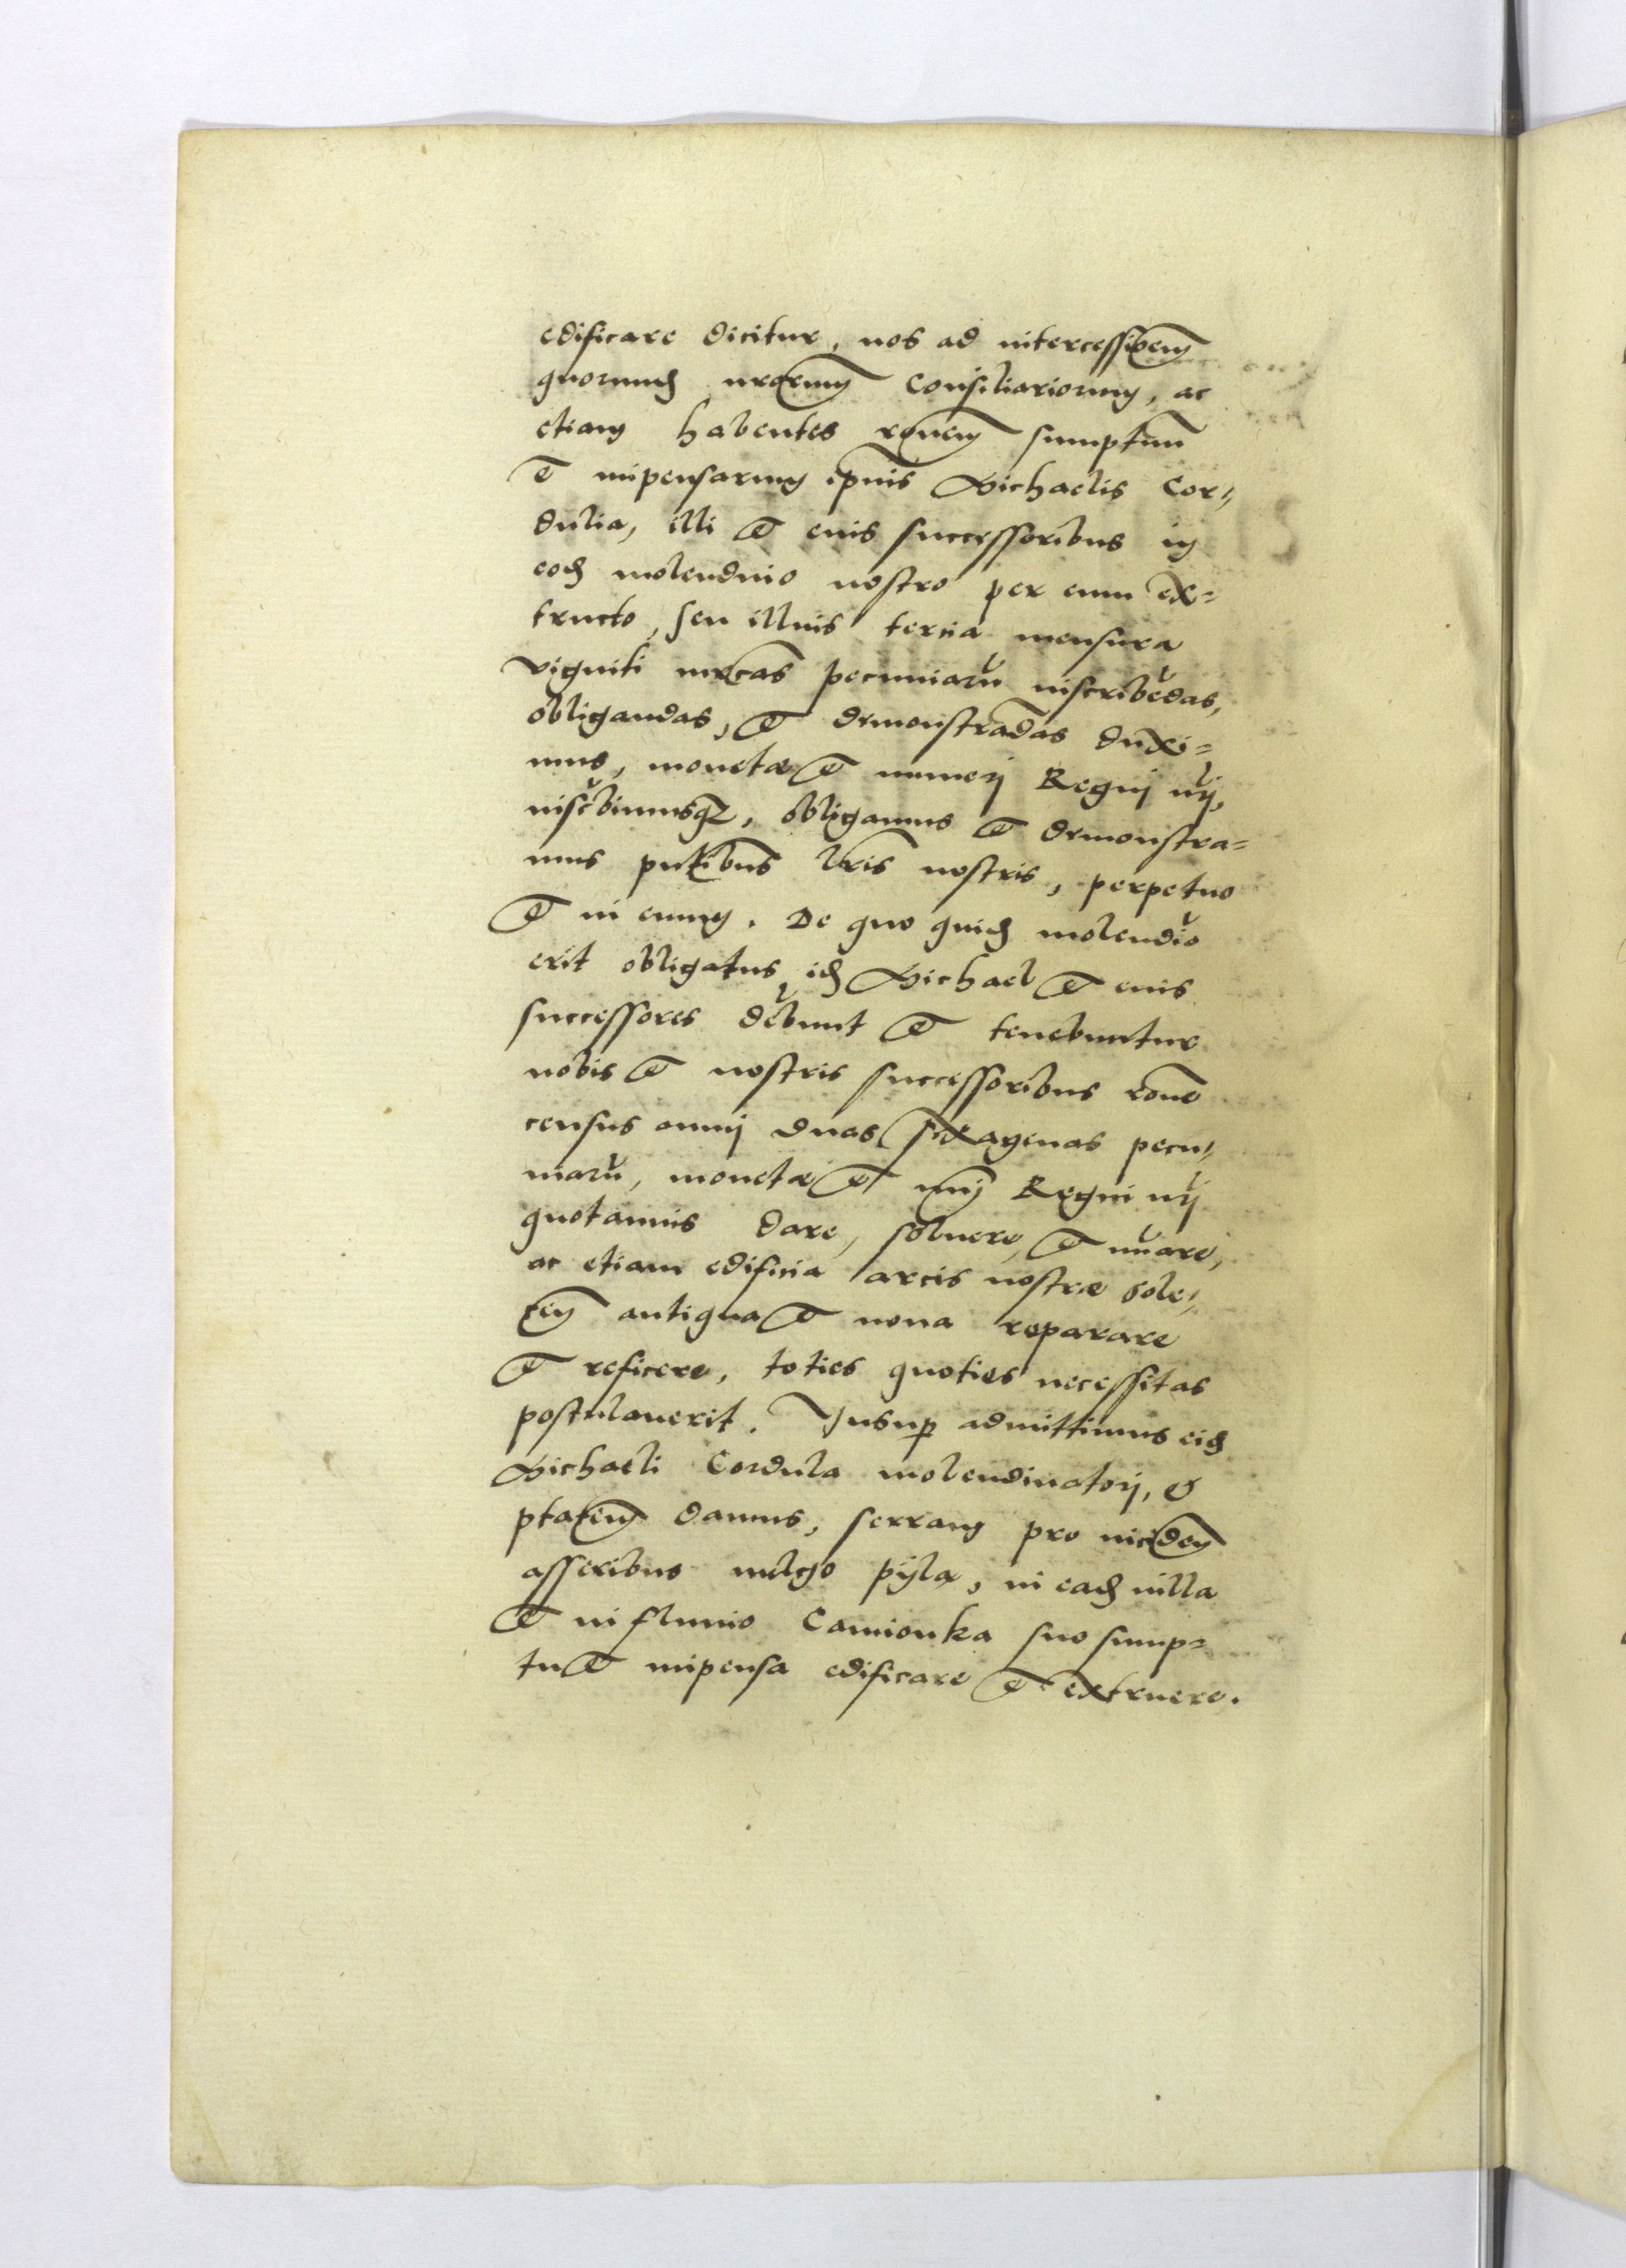 edificare dicitur, nos ad intercessioem
quorund nrorum Consiliariorum, ac
etiam habentes ronem sumptuu
et impensarum ipius Michaelis Cor„
dula, illi et eius successoribus in
eod molendino nostro per eum ex=
tructo, seu illius tercia mensura
viginti mrcas pecuniarū inscribēdas,
obligandas, et demonstradas duxi=
mus, monetæ et numerj Regnj nrj,
inscbimusq, obligamus et demonstra=
mus pntibus lris nostris, perpetuo
et in euum. De quo quid molendio
erit obligatus id Michael et eius
successores debunt et tenebuntur
nobis et nostris successoribus rone
census annij duas sexagenas pecu„
niarū, monetæ et nrij Regni nrj
quotannis dare, soluere, et nuare,
ac etiam edificia arcis nostræ Sole„
cen antiqua et noua reparare
et reficere, toties quoties necessitas
postulauerit. Insup admittimus eid
Michaeli Cordula molendinatorj, &
ptatem damus, serram pro incidem
asseribus uulgo pijla, in ead uilla
et in fluuio Camionka suo sump=
tu et impensa edificare et extruere.